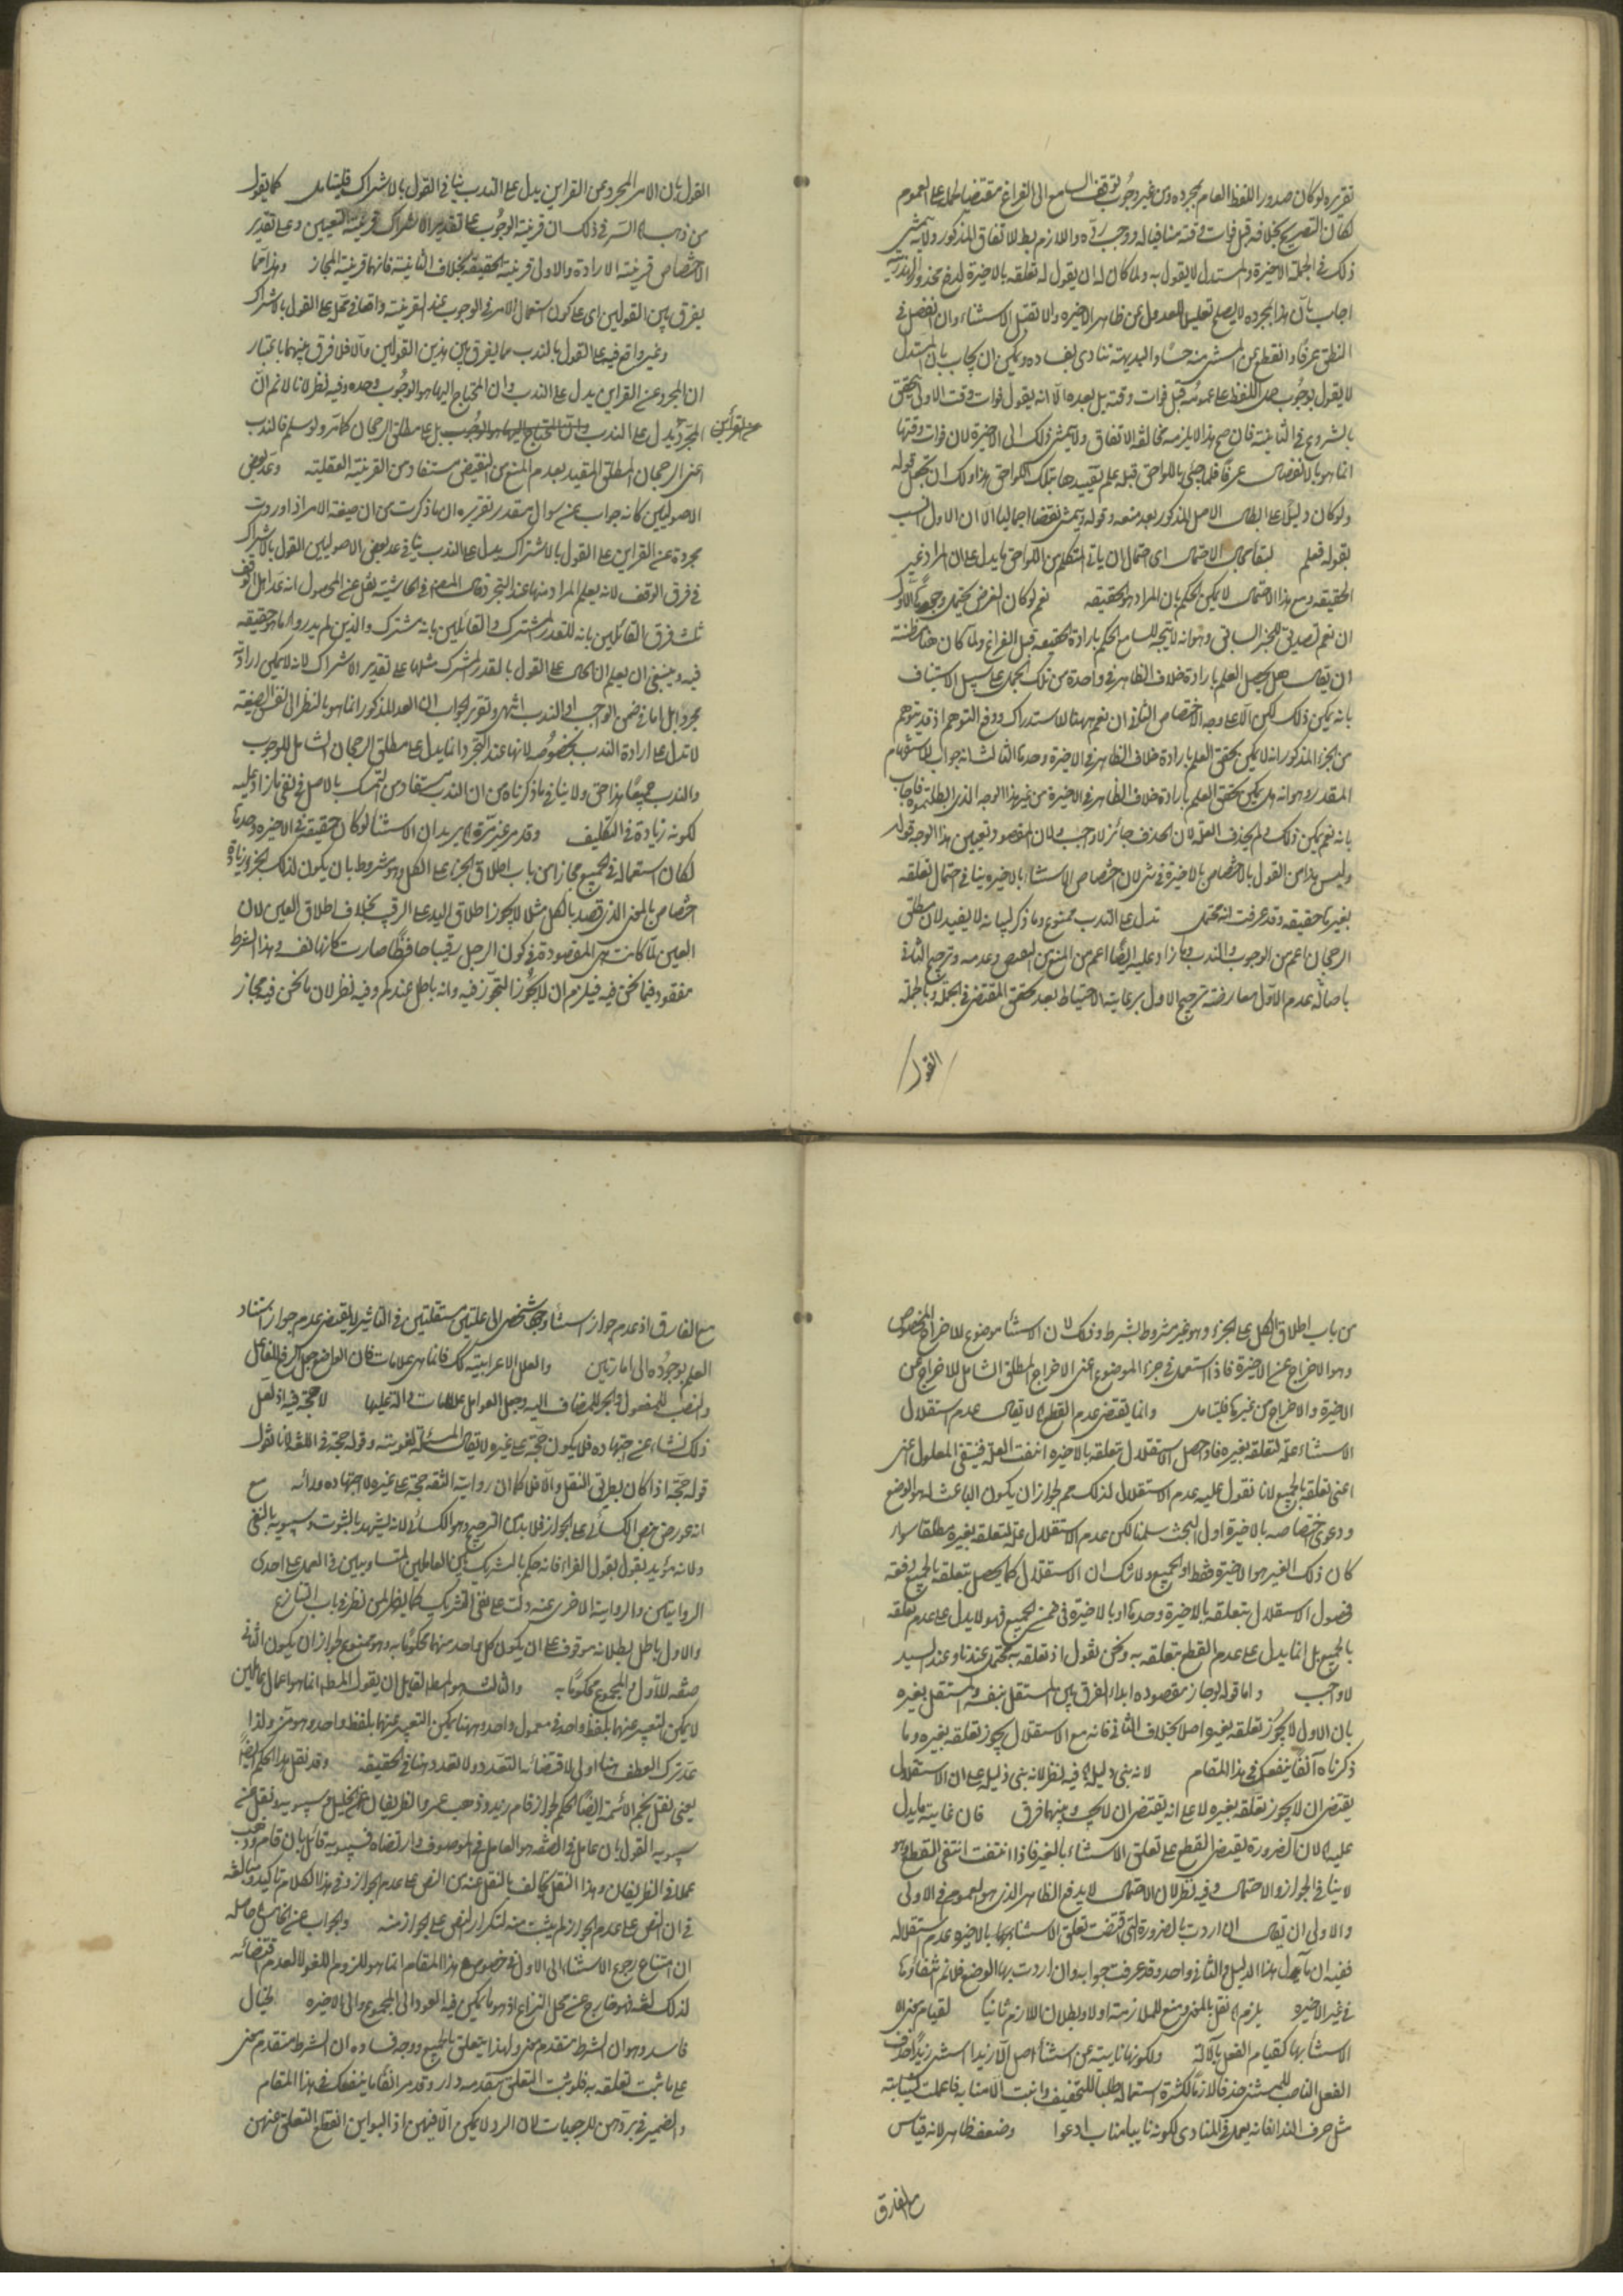 تقريره لو كان صدور اللفظ العام بمجرده من غير وجوب توقف السامع الى الفراغ مقتضيا لحمله على العموم
لكان التصريح بخلافه قبل فوات وقته منافيا له ووجب رده واللازم بط بالاتفاق المذكور ولانه يتمشى
ذلك في الجملة الاخيرة والمستدل لا يقول به ولما كان له ان يقول له تعلقه بالاخيرة لدفع محذور الهذرية
اجاب بان هذا بمجرده لا يصلح تعليلا للعدول عن ظاهر الاخيرة والا تقبل الاستثناء وان انفصل في
النطق عرفا وانقطع عن المستثنى منه حسا والبديهة تنادى بفساده ويمكن ان يجاب بان المستدل
لا يقول بوجوب حمل اللفظ على عمومه قبل فوات وقته بل بعده الا انه يقول فوات وقت الاولى يتحقق
بالشروع في الثانية فان صح هذا لا يلزمه مخالفة الاتفاق ولا يتمشى ذلك الى الاخيرة لان فوات وقتها
انما هو بالانفصال عرفا فلما جئ باللواحق قبله علم تقييدها بتلك اللواحق هذا ولك ان تجعل قوله
ولو كان دليلا على ابطال الاصل المذكور بعد منعه وقوله ويتمشى نقضا اجماليا الا ان الاول انسب
بقوله فعلم لبقاء مجال الاحتمال اى احتمال ان ياتى المتكلم من اللواحق ما يدل على ان المراد غير
الحقيقه ومع هذا الاحتمال لا يمكن الحكم بان المراد هو الحقيقه نعم لو كان الغرض يحتمل وجوها الاول
ان نعم تصديق للخبر السابق وهو انه لا يتجه للسامع الحكم بارادة الحقيقه قبل الفراغ ولما كان هنا مظنة
ان يقال هل يحصل العلم بارادة خلاف الظاهر في واحدة من تلك الجمل على سبيل الاستيناف
بانه يمكن ذلك لكن لا على وجه الاختصاص الثاني ان نعم ههنا للاستدراك ودفع التوهم اذ قد يتوهم
من الخبر المذكور انه لا يمكن تحقق العلم بارادة خلاف الظاهر في الاخيرة وحدها الثالث انه جواب للاستفهام
المقدر وهو انه هل يمكن تحقق العلم بارادة خلاف الظاهر في الاخيرة من غير هذا الوجه الذى ابطلتموه فاجاب
بانه نعم يمكن ذلك ولم يحذف العلة لان الحذف جائز لا واجب ولان المقصود تعيين هذا الوجه قوله
وليس هذا من القول بالاختصاص بالاخيرة في شئ لان اختصاص الاستثناء بالاخيره ينافي احتمال تعلقه
بغيرها حقيقه وقد عرفت انه محتمل تدل على الندب ممنوع وما ذكر لبيانه لا يفيد لان مطلق
الرجحان اعم من الوجوب والندب وما زاد عليه ايضا اعم من المنع من النقيض وعدمه وترجيح الثاني
باصالة عدم الاول معارضة بترجيح الاول برعاية الاحتياط بعد تحقق المقتضى في الجملة وبالجملة
القول
القول بان الامر المجرد عن القراين يدل على الندب ينافى القول بالاشتراك فليتامل كما يقول
من ذهب السر في ذلك ان قرينة الوجوب على تقدير الاشتراك قرينة التعيين وعلى تقدير
الاختصاص قرينة الارادة والاول قرينة الحقيقة بخلاف الثانية فانها قرينة المجاز وهذا مما
يفرق بين القولين اى على كون استعمال الامر في الوجوب عند القرينة واقعا في محل على القول بالاشتراك
وغير واقع فيه على القول بالندب مما يفرق بين هذين القولين والا فلا فرق بينهما باعتبار
ان المجرد عن القراين يدل على الندب وان المحتاج اليها هو الوجوب وحده وفيه نظر لانا لا نم ان
المجرد عن القرائن يدل على الندب وان المحتاج اليها هو الوجوب بل على مطلق الرجحان كما مر ولو سلم فالندب
اعنى الرجحان المطلق المقيد بعدم المنع من النقيض مستفاد من القرينة العقلية وعد بعض
الاصوليين كانه جواب عن سوال مقدر تقريره ان ما ذكرت من ان صيغة الامر اذا وردت
مجردة عن القراين على القول بالاشتراك يدل على الندب ينافى عد بعض الاصوليين القول بالاشتراك
في فرق الوقف لانه يعلم المراد منها عند التجرد قال المصنف في الحاشية نقل عن المحصول انه عد اهل الوقف
ثلث فرق القائلين بانه للقدر المشترك والقائلين بانه مشترك والذين لم يدروا ما هو حقيقة
فيه وينبغى ان يعلم ان الحال على القول بالقدر المشترك مثلها على تقدير الاشتراك لانه لا يمكن ارادته
مجردا بل اما في ضمن الواجب او الندب اشهر وتقرير الجواب ان العد المذكور انما هو بالنظر الى نفس الصيغة
لا تدل على ارادة الندب بخصوصه لانها عند التجرد انما يدل على مطلق الرجحان الشامل للوجوب
والندب جميعا هذا حق ولا ينافى ما ذكرناه من ان الندب مستفاد من التمسك بالاصل في نفى ما زاد عليه
لكونه زيادة في التكليف وقد مر غير مرة يريد ان الاستثناء لو كان حقيقة في الاخيره وحدها
لكان استعماله في الجميع مجازا من باب اطلاق الجزء على الكل وهو مشروط بان يكون لذلك الجزء زيادة
اختصاص بالمعنى الذى قصد بالكل مثلا لا يجوز اطلاق اليد على الرقيب بخلاف اطلاق العين لان
العين لما كانت هى المقصودة في كون الرجل رقيبا حافظا صارت كانها نفسه وهذا الشرط
مفقود فيما نحن فيه فيلزم ان لا يجوز التجوز فيه وانه باطل عندكم وفيه نظر لان ما نحن فيه مجاز
من باب اطلاق الكل على الجزء وهو غير مشروط بشرط وذلك لان الاستثناء موضوع للاخراج المخصوص
وهو الاخراج عن الاخيرة فاذا استعمل في جزء الموضوع اعنى الاخراج المطلق الشامل للاخراج عن
الاخيرة والاخراج عن غيرها فليتامل وانما يقتضى عدم القطع لا يقال عدم استقلال
الاستثناء علة لتعلقه بغيره فاذا حصل الاستقلال بتعلقه بالاخيره انتفت العلة فينتفى المعلول اعنى
اعنى تعلقه بالجميع لانا نقول علية عدم الاستقلال لذلك مم لجواز ان يكون الباعث له هو الوضع
ودعوى اختصاصه بالاخيرة اول البحث سلمنا لكن عدم الاستقلال علة لتعلقه بغيره مطلقا سواء
كان ذلك الغير هو الاخيرة فقط او الجميع ولا شك ان الاستقلال كما يحصل بتعلقه بالجميع دفعة
فحصول الاستقلال بتعلقه بالاخيرة وحدها او بالاخيرة في ضمن الجميع فهو لا يدل على عدم تعلقه
بالجميع بل انما يدل على عدم القطع بتعلقه به ونحن نقول اذ تعلقه به محتمل عندنا وعند السيد
لا واجب واما قوله لو جاز مقصوده ابداء الفرق بين المستقل بنفسه والمستقل بغيره
بان الاول لا يجوز تعلقه بغيره اصلا بخلاف الثانى فانه مع الاستقلال يجوز تعلقه بغيره وما
ذكرناه آنفا ينفعك في هذا المقام لانه بنى دليله فيه نظر لانه بنى دليله على ان الاستقلال
يقتضى ان لا يجوز تعلقه بغيره لا على انه يقتضى ان لا يجب وبينهما فرق فان غاية ما يدل
عليه لان الضرورة يقتضى القطع على تعلق الاستثناء بالغير فاذا انتفت انتفى القطع وهو
لا ينافى الجواز والاحتمال وفيه نظر لان الاحتمال لا يدفع الظاهر الذى هو العموم في الاولى
والاولى ان يقال ان اردت بالضرورة التى اقتضت تعلق الاستثناء بها بالاخيرة عدم استقلاله
ففيه ان مآل هذا الدليل والثانى واحد وقد عرفت جوابه وان اردت بها الوضع فلا نم انتفاؤها
في غير الاخيره يلزم نقل بالمعنى ومنع للملازمة اولا وبطلان اللازم ثانيا لقيام معنى الا
الاستثناء بها كقيام الفعل بآلاته ولكونها نايبة عن استثنى اصل الا زيدا استثنى زيدا فحذف
الفعل الناصب للمستثنى حذفا لازما لكثرة استعماله طلبا للتخفيف وانيبت الا منابه فاعملت لنيابته
مثل حرف النداء فانه يعمل في المنادى لكونه نايبا مناب ادعوا وضعفه ظاهر لانه قياس
مع الفارق
مع الفارق اذ عدم جواز استناد وجود شخص الى علتين مستقلتين في التاثير لا يقتضى عدم جواز استناد
العلم بوجوده الى امارتين والعلل الاعرابية كك فانما هى علامات فان الواضع جعل الرفع للفاعل
والنصب للمفعول والجر للمضاف اليه وجعل العوامل علامات دالة عليها لا حجة فيه اذ لعل
ذلك نشاء عن اجتهاده فلا يكون حجة على غيره لا يقال المسئلة لغوية وقوله حجة في اللغة لانا نقول
قوله حجة اذا كان بطريق النقل والا فلا كما ان رواية الثقة حجة على غيره لا اجتهاده ورائه مع
انه عورض بنص الكسائى على الجواز فلا بد من الترجيح وهو الكسائى لانه يشهد بالثبوت وسيبويه بالنفى
ولانه مؤيد بقول بقول الفراء فانه حكم بالتشريك بين العاملين المتساويين في العمل على احدى
الروايتين والرواية الاخرى عنه دلت على نفى التشريك كما يظهر لمن نظر في باب التنازع
والاول باطل بطلانه موقوف على ان يكون كل واحد منهما محكوما به وهو ممنوع لجواز ان يكون الثانى
صفة للاول والمجموع محكوما به والثالث هو المط لقائل ان يقول المط انما هو اعمال عاملين
لا يمكن التعبير عنهما بلفظ واحد في معمول واحد وههنا يمكن التعبير عنهما بلفظ واحد وهو مز ولذا
عد ترك العطف هنا اولى لاقتضائه التعدد ولا تعدد هنا في الحقيقه وقد نقل هذا الحكم ايضا
يعنى نقل نجم الائمة ايضا الحكم بجواز قام زيد وذهب عمرو الظريفان عن الخليل وسيبويه ونقل عن
سيبويه القول بان عامل في الصفه هو العامل في الموصوف وارتضاه فسيبويه قائل بان قام وذهب
عملا في الظريفان وهذا النقل يخالف بالنقل عنه من النص على عدم الجواز وفي هذا الكلام تاكيد ومبالغة
في ان النص على عدم الجواز لم يثبت منه لتكرار النص على الجواز منه والجواب عن الخامس حاصله
ان امتناع رجوع الاستثناء الى الاول في خصوص هذا المقام انما هو للزوم اللغو لا لعدم اقتضائه
لذلك لغة فهو خارج عن محل النزاع اذ هو ما يمكن فيه العود الى المجموع والى الاخيره لخيال
فاسد وهو ان الشرط متقدم معنى ولهذا يتعلق بالجميع ووجه فساده ان الشرط متقدم معنى
على ما ثبت تعلقه به فلو ثبت التعلق بتقدمه دار وقد مر آنفا ما ينفعك في هذا المقام
والضمير في بردهن للرجعيات لان الرد لا يمكن الا فيهن اذ البواين انقطع التعلق عنهن